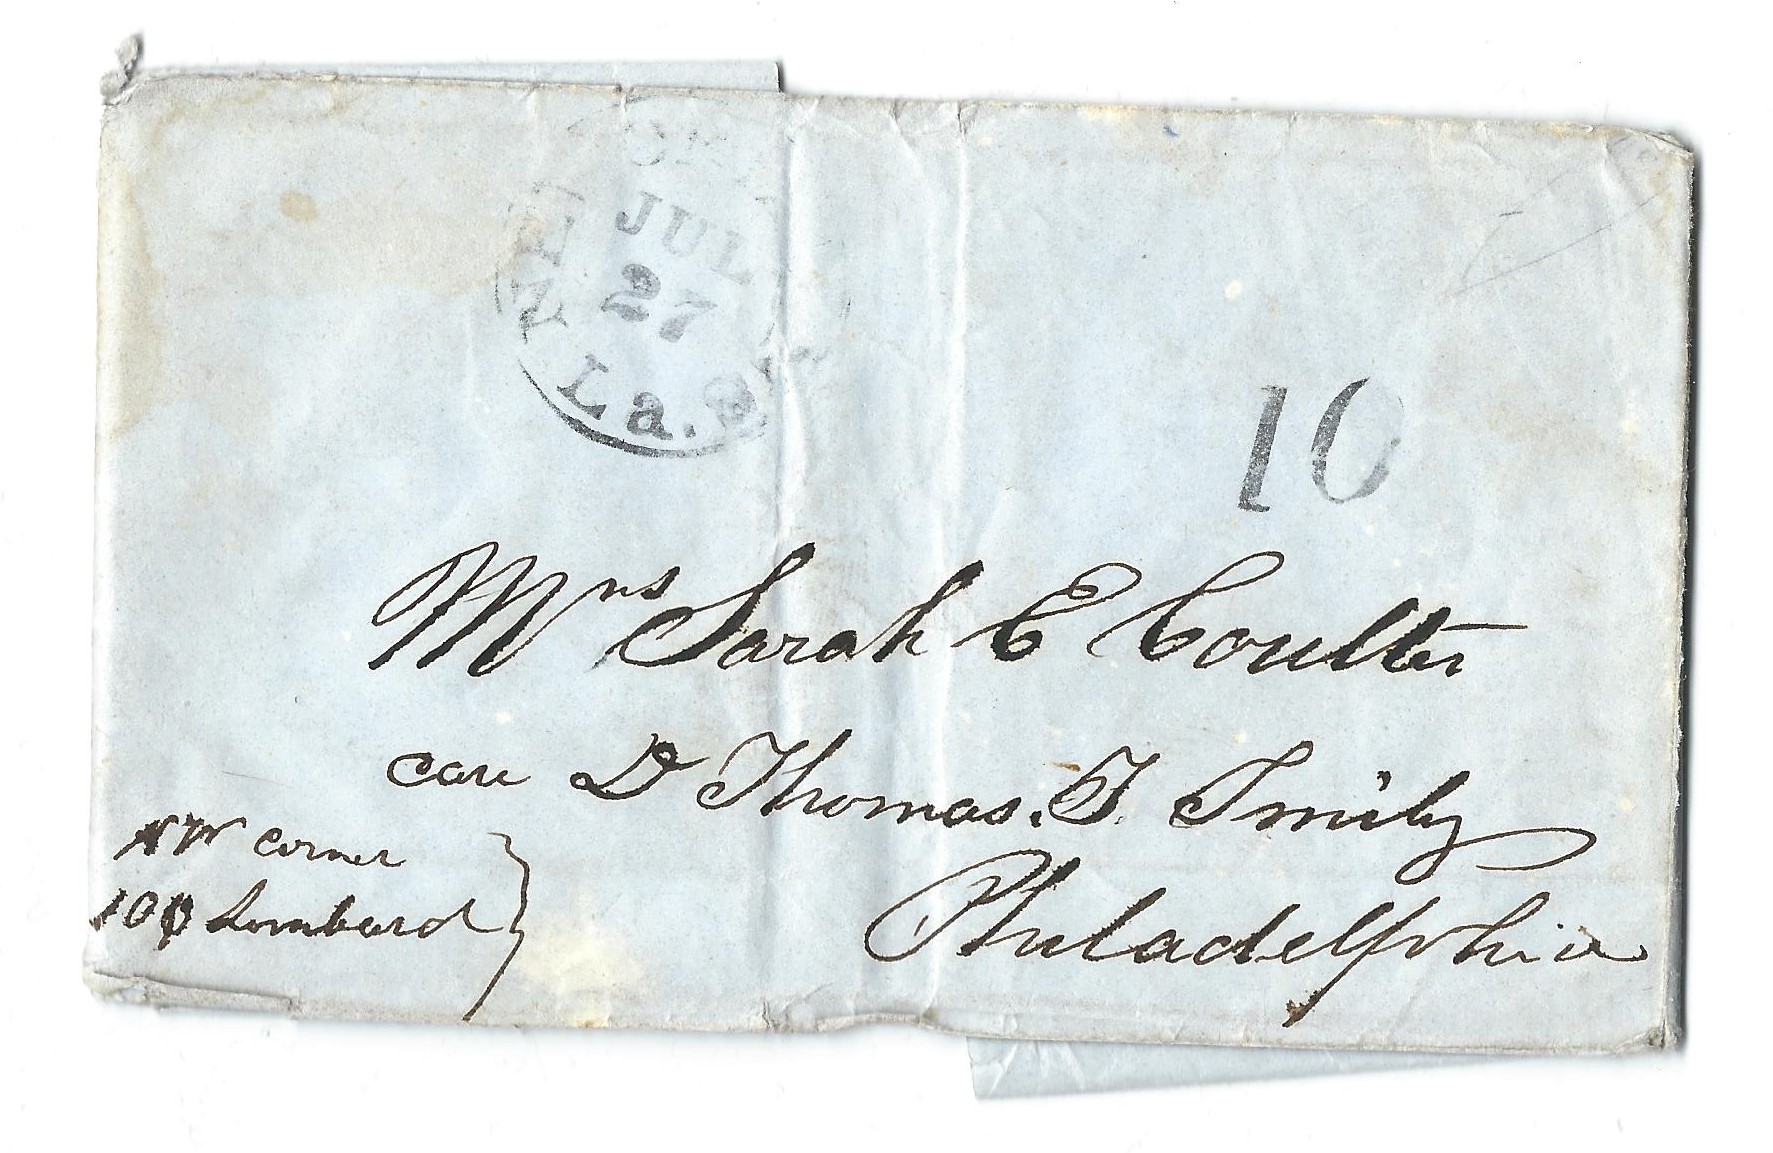 NEW
JUL
27
La.
10
Mrs Sarah E Coulter
care Dr Thomas. F. Smiley
Philadelphia
NW corner
Lombard